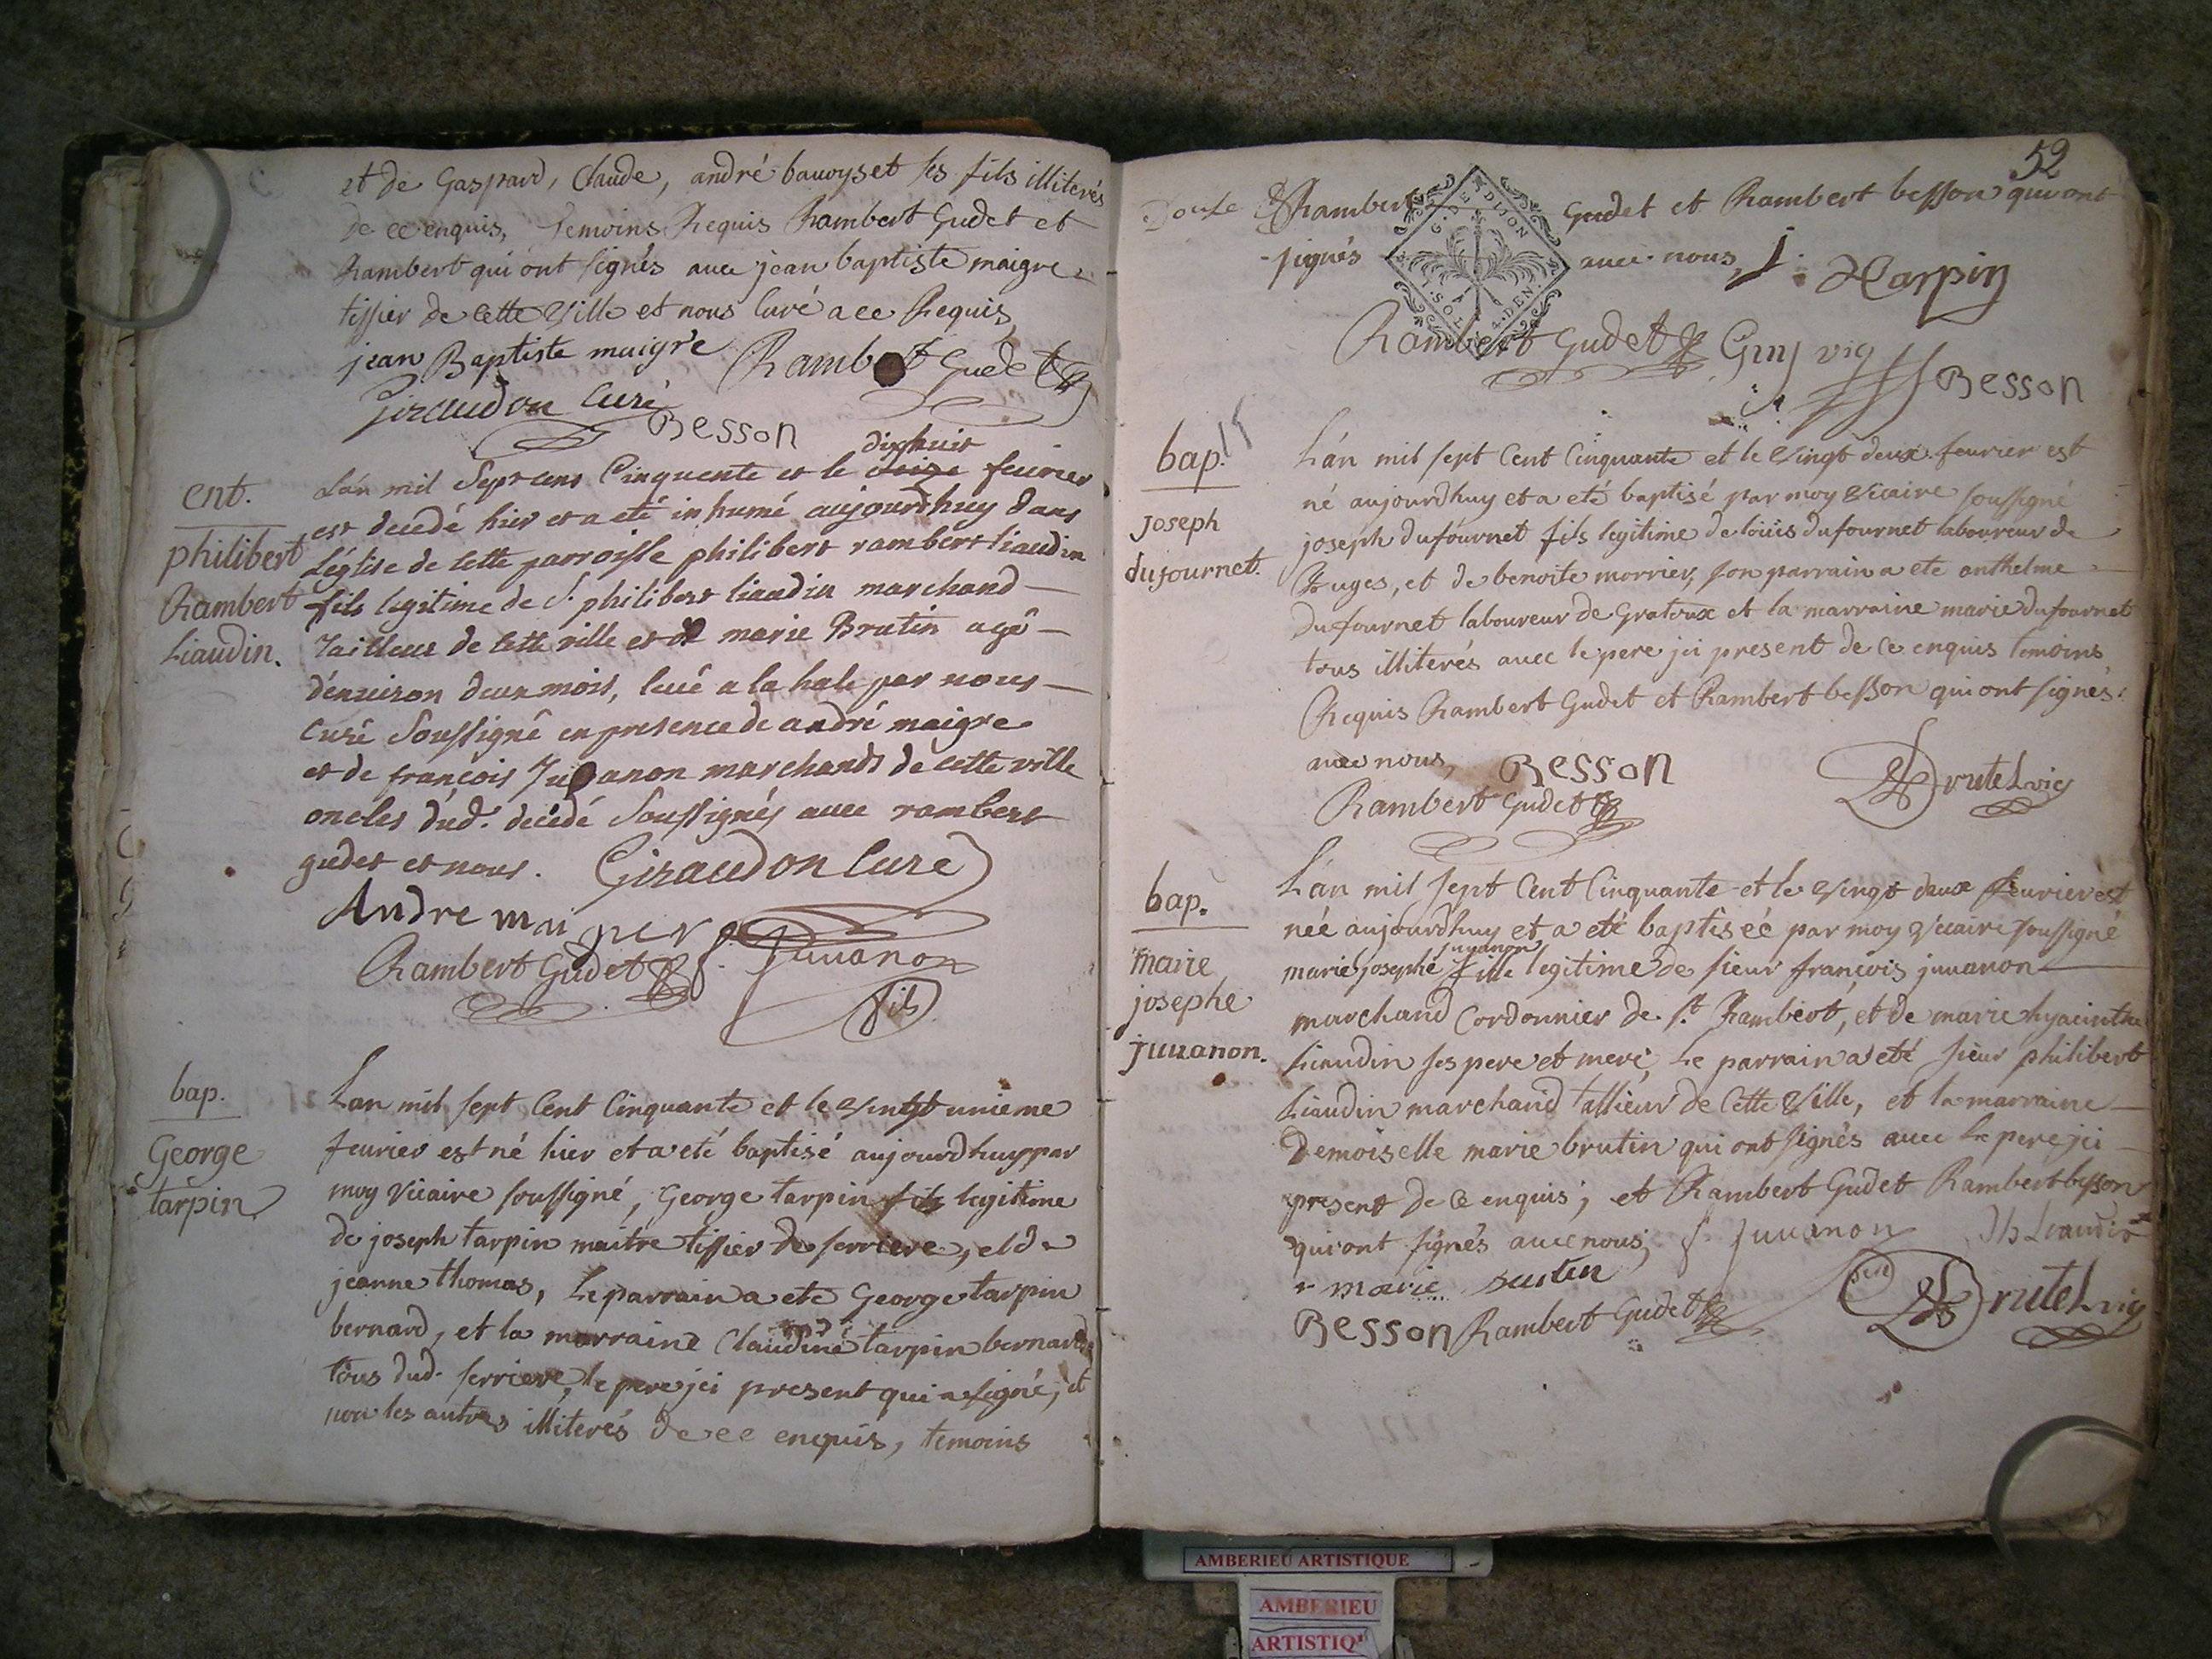 et de Gaspard, Claude, andré bauoyset ses fils illiterés
de ce enquis, temoins Requis Rambert Gudet et
Rambert qui ont signés auec jean baptiste maigre
tissier de cette Ville et nous curé a ce Requis
jean Baptiste maigre Rambert Gudet
Giraudon Curé
Besson
ent.
philibert
Rambert
Liaudin.
dixhuit
L'an mil Sept cens Cinquente et le feurier
est decedé hier et a eté inhumé aujourdhuy dans
L'église de cette parroisse philibert rambert liaudin
fils legitime de S. philibert liaudin marchand
Tailleur de cette ville et de marie Brutin agé
d'enuiron deux mois, leué a la hale par nous
curé Soussigné en presence de andré maigre
et de françois Juuanon marchands de cette ville
oncles dud. decédé Soussignés auec rambert
gudet et nous. Giraudon Curé
Andre maigre
Rambert Gudet f. Juuanon
fils
bap.
George
tarpin
Lan mil sept Cent Cinquante et le vingt unieme
feurier est né hier et a eté baptisé aujourdhuy par
moy Vicaire soussigné, George tarpin fils legitime
de joseph tarpin maitre tissier de serriere, et de
jeanne thomas, Le parrain a ete George tarpin
bernard, et la marraine Claudine tarpin bernard
tous dud. serriere, le pere jci present qui a signé, et
non les autres illiterés de ce enquis, temoins
52
Douse Rambert Gudet et Rambert besson qui ont
signés auec nous, J. Tarpin
G. DE DIJON
4. DEN.
Rambert Gudet Guy vic
Besson
bap. 15
joseph
dufournet.
L'an mil sept Cent Cinquante et le vingt deux feurier est
né aujourdhuy et a eté baptisé par moy Vicaire soussigné
joseph dufournet fils legitime de loüis dufournet laboureur de
Buges, et de benoite morrier, son parrain a ete anthelme
Dufournet laboureur de Gratoux et la marraine marie dufournet
tous illiterés auec le pere jci present de ce enquis temoins
Requis Rambert Gudet et Rambert besson qui ont signés
auec nous, Besson
Rambert Gudet Drutel vic
bap.
marie
josephe
juuanon.
L'an mil sept Cent Cinquante et le vingt deux feurier est
née aujourdhuy et a eté baptiséé par moy Vicaire soussigné
juuanon
marie josephe fille legitime de sieur françois juuanon
marchand Cordonnier de st. Rambert, et de marie hyacinthe
Liaudin ses pere et mere, Le parrain a eté sieur philibert
Liaudin marchand tallieur de Cette Ville, et la marraine
Demoiselle marie brutin qui ont signés auec le pere jci
present de ce enquis, et Rambert Gudet Rambert besson
qui ont signés auec nous, f. Juuanon Ph Liaudin
marie
Besson Rambert Gudet Drutel vic
AMBERIEU ARTISTIQUE
AMBERIEU
ARTISTIQ